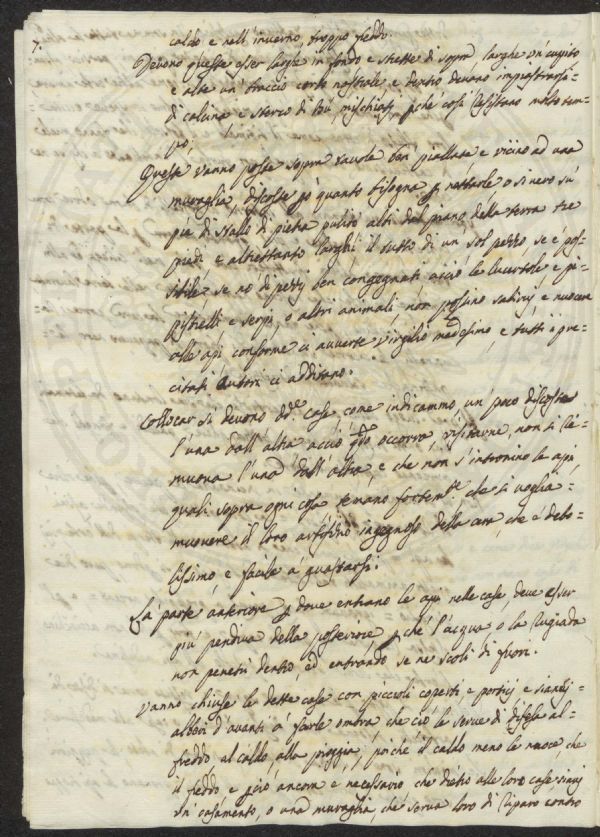 7.
caldo e nell'inverno, troppo freddo.
Devono queste esser larghe in fondo e strette di sopra larghe un cupito
e alte un braccio corto nostrale, e dentro devono impiastrarsi
di calcina e sterco di bù, mischiati, p chè così resistano molto tem=
po;
Queste vanno poste sopra tavole ben piallate e vicino ad una
muraglia, discoste pò quanto bisogna p nettarle o sivero sù
piè di stallo di pietra puliti alti dal piano della terra tre
piedi e altrettanto larghi il tutto di un sol pezzo se è pos=
sibile, se nò di pezzi ben congegnati acciò le lucertole e pi=
pistrelli e serpi, o altri animali, non possino salirvi e nuocere
alle api conforme ci avverte Virgilio medesimo, e tutti i pre=
citati Autori ci additano.
Collocar si devono dde. case, come indicammo, un poco discoste
l'una dall'altra acciò qdo occorra, visitarne, non si ri=
muova l'una dall'altra, e che non s'intronino le api
quali sopra ogni cosa temano fortente. che si voglia=
muovere il loro artifizio ingegnoso della cera, che è debo=
lissimo e facile a guastarsi.
La parte anteriore p dove entrano le api nelle case, deve esser
più pendiva della posteriore, p chè l'acqua o la rugiada
non penetri dentro, ed entrando se ne scoli di fuori.
Vanno chiuse le dette case con piccoli coperti e portici e sianvi
alberi d'avanti à farle ombra, che ciò le serve di difesa al=
freddo al caldo, alla pioggia, poichè il caldo meno le nuoce che
il freddo e però ancora è necessario che dietro alle loro case, siavi
un casamento, o una muraglia, che serva loro di riparo contro